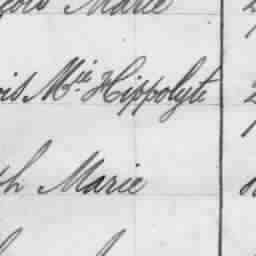 çois Marie
çois Mie Hippolyte
ph Marie